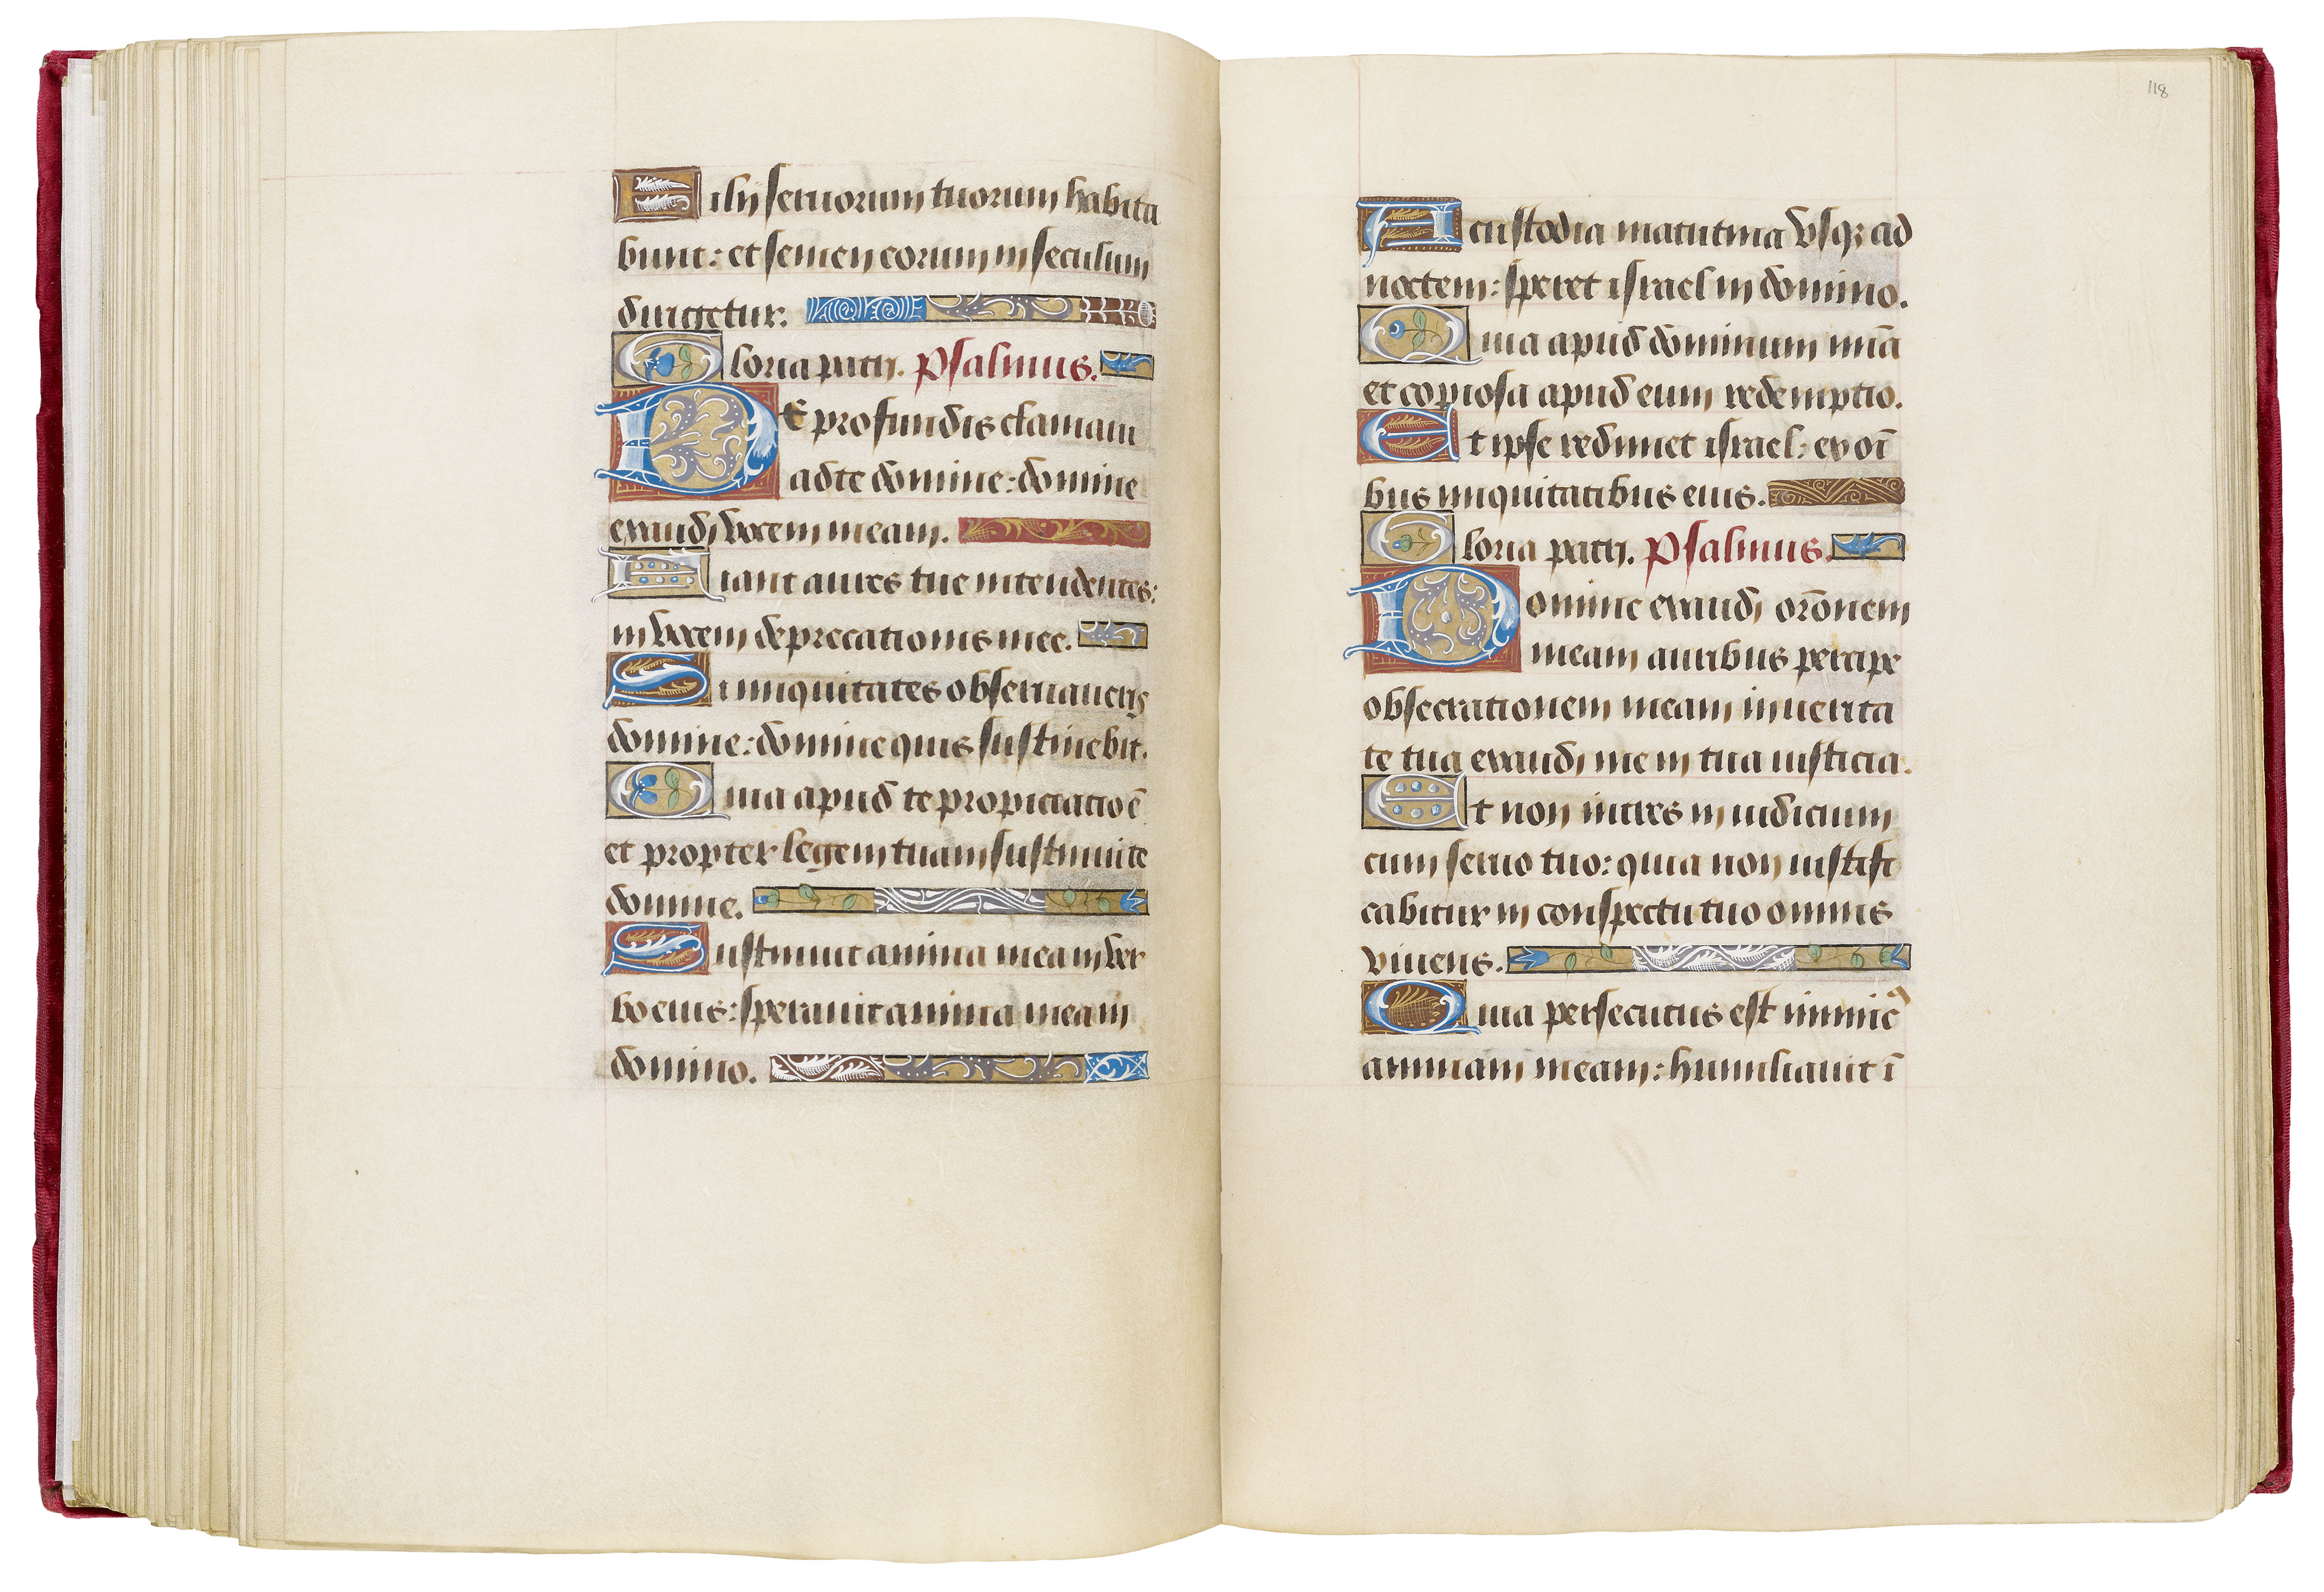 Filij seruorum tuorum habita
bunt: et semen eorum in seculum
dirigetur.
Gloria patri. Psalmus.
DE profundis clamaui
ad te domine: domine
exaudi vocem meam.
Fiant aures tue intendentes:
in vocem deprecationis mee.
Si iniquitates obseruaueris
domine: domine quis sustinebit.
Quia apud te propiciatio ē
et propter legem tuam sustinui te
domine.
Sustinuit anima mea in ver
bo eius: sperauit anima mea in
domino.
118
A custodia matutina vsqʒ ad
noctem: speret israel in domino.
Quia apud dominum mīa
et copiosa apud eum redemptio.
Et ipse redimet israel: ex oī
bus iniquitatibus eius.
Gloria patri. Psalmus.
Domine exaudi orōnem
meam auribus percipe
obsecrationem meam in uerita
te tua exaudi me in tua iusticia.
Et non intres in iudicium
cum seruo tuo: quia non iustifi
cabitur in conspectu tuo omnis
viuens.
Quia persecutus est inimicꝰ
animam meam: humiliauit ī